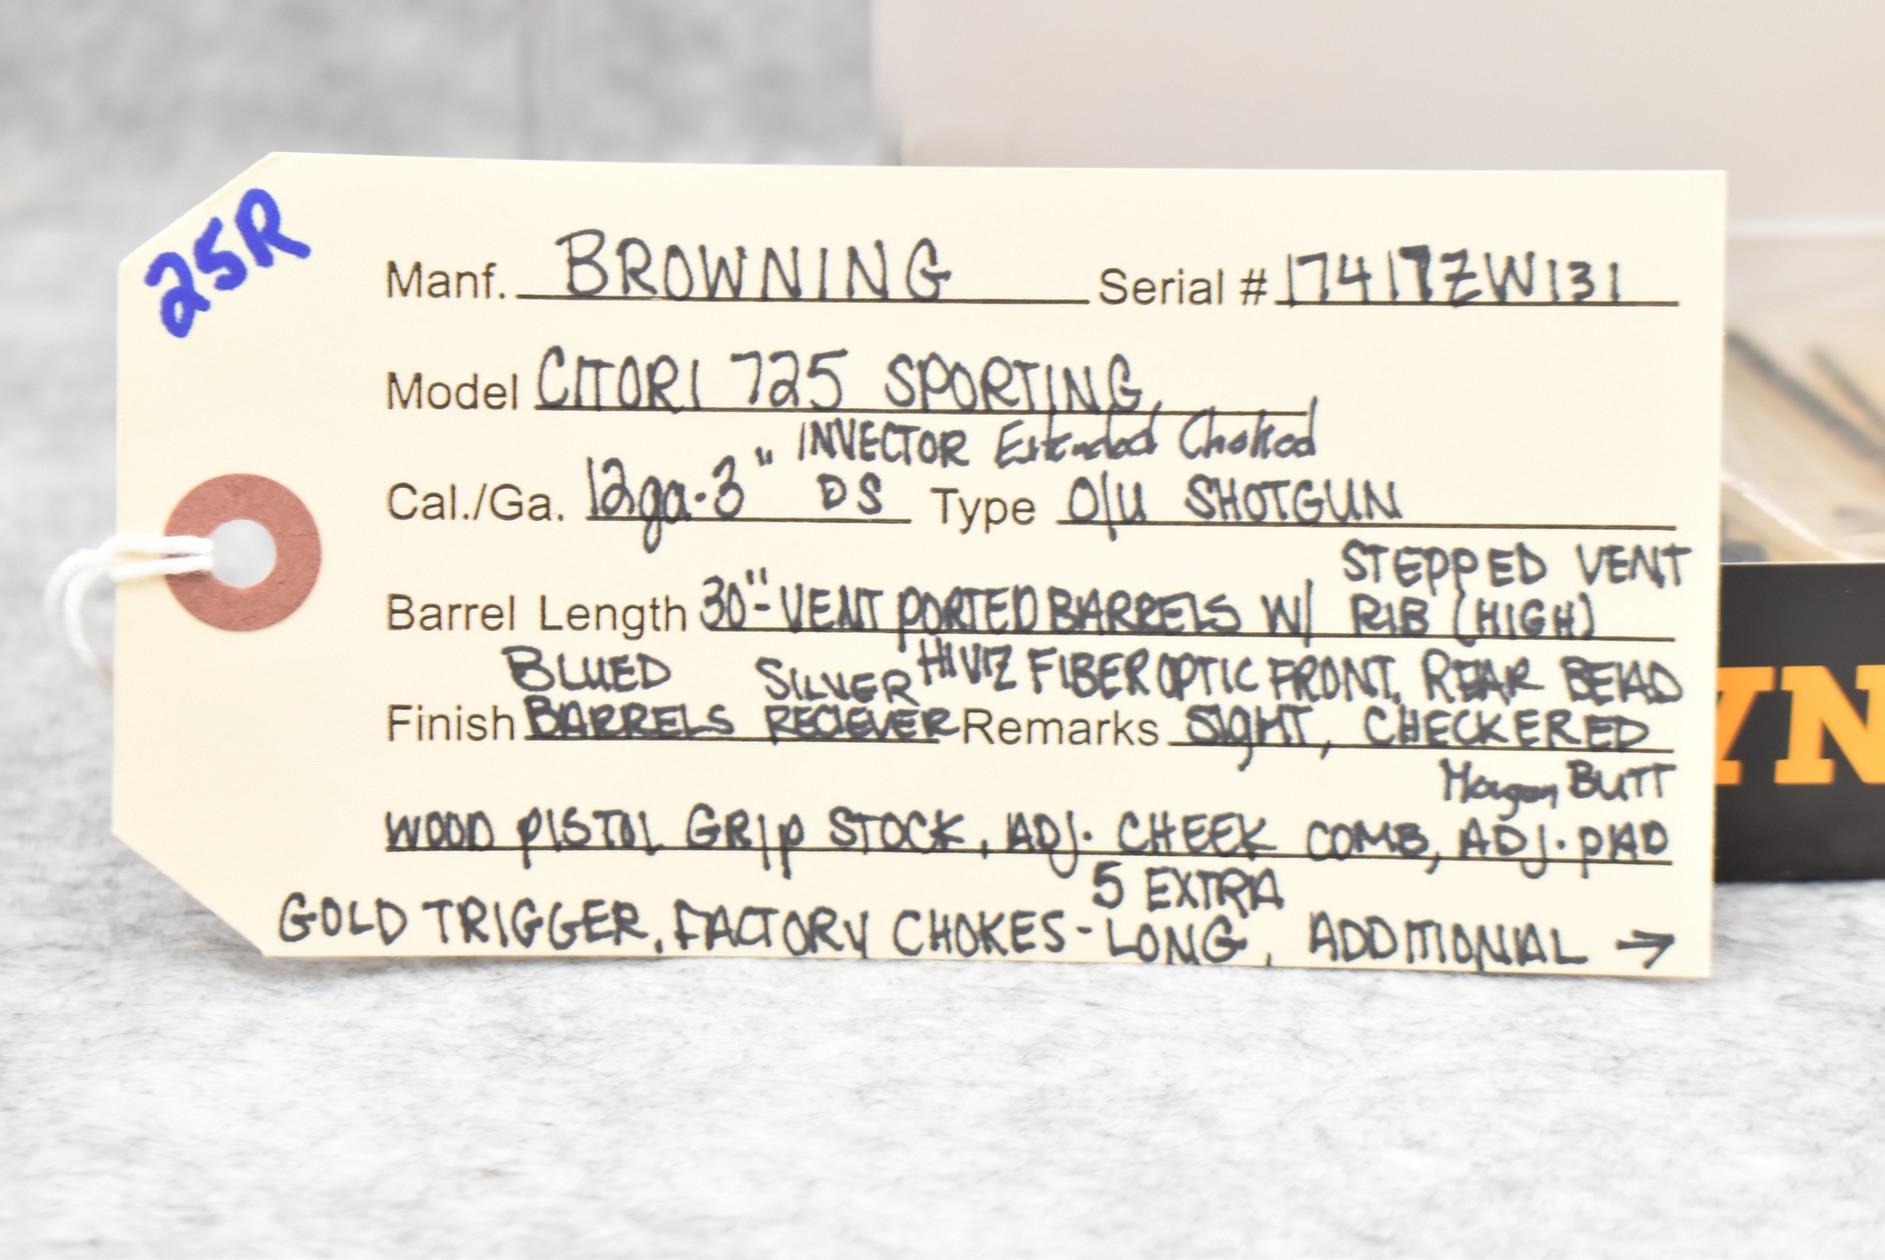 25R
Manf. BROWNING Serial # 17417ZW131
Model CITORI 725 SPORTING,
INVECTOR Extended Choked
Cal./Ga. 12ga-3" DS Type O/U SHOTGUN
STEPPED VENT
Barrel Length 30"-VENT PORTED BARRELS W/ RIB (HIGH)
BLUED SILVER HIVIZ FIBER OPTIC FRONT, REAR BEAD
Finish BARRELS RECIEVER Remarks SIGHT, CHECKERED
Morgan BUTT
WOOD PISTOL GRIP STOCK, ADJ. CHEEK COMB, ADJ. PAD
5 EXTRA
GOLD TRIGGER, FACTORY CHOKES - LONG, ADDITIONAL →
YN